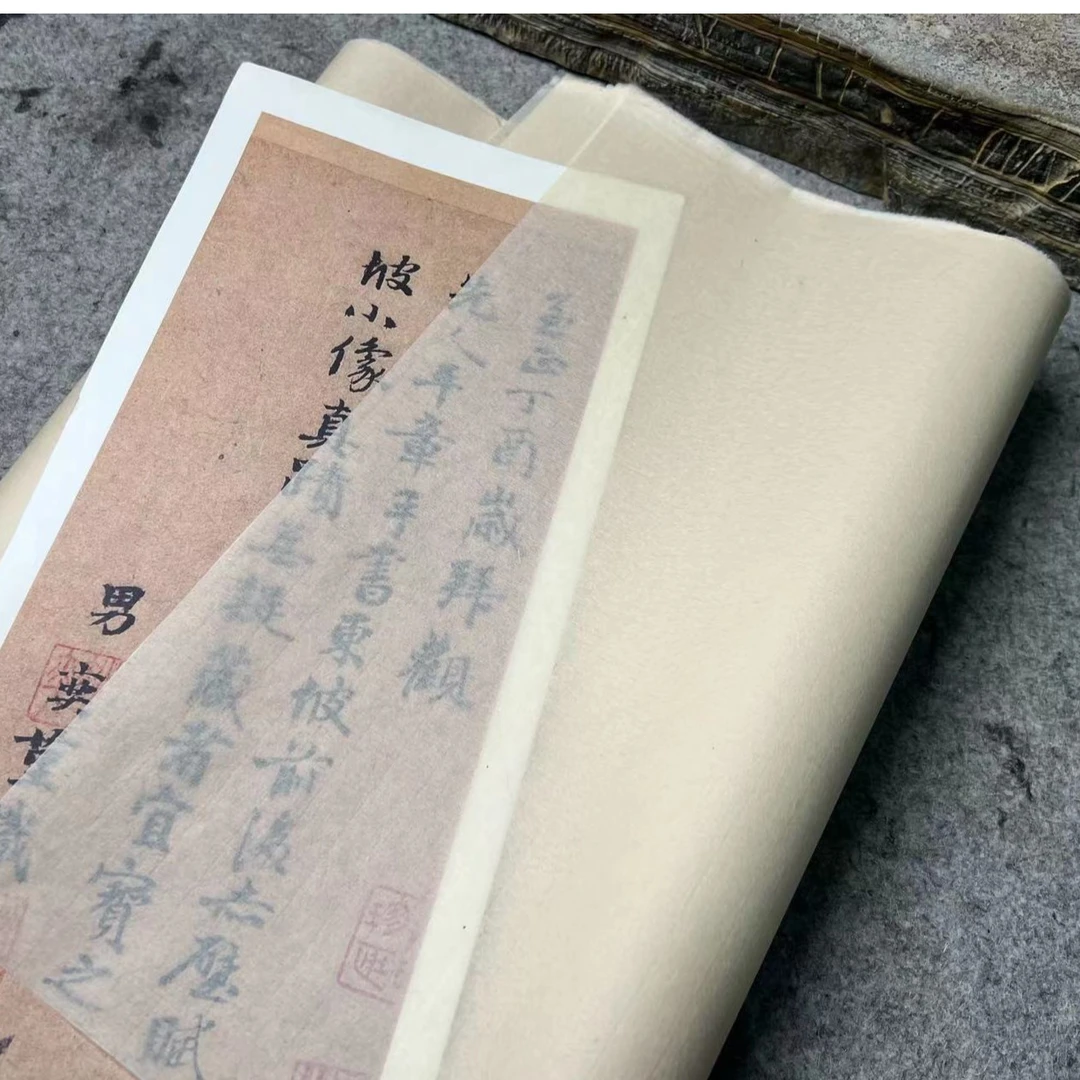 至正丁酉歲拜觀
先人平章手書東坡前後赤壁賦
坡小像真蹟無疑藏者宜寶之
男奕